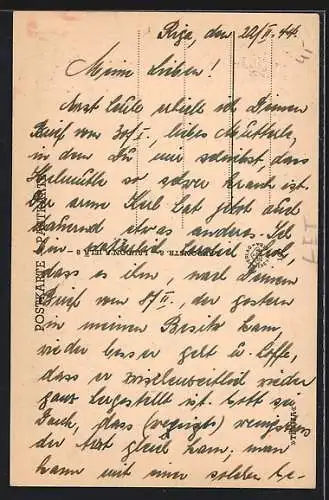 Riga, den 20/II. 44.
Meine Lieben!
Erst heute erhielt ich Deinen
Brief vom 30/I., liebes Mutterle,
in dem Du mir schreibst, dass
Helmuth so schwer krank ist.
Der arme Kerl hat jetzt auch
dauernd etwas anderes. Ich
bin natürlich froh,
dass es ihm, nach Deinem
Brief vom 17/II., der gestern
in meinen Besitz kam,
wieder besser geht u. hoffe,
dass er zwischenzeitlich wieder
ganz hergestellt ist. Gott sei
Dank, dass wenigstens
der Arzt gleich kam; man
kann mit einer solchen Ge-
POSTKARTE